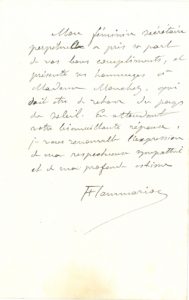 Mon féminin secrétaire
perpétuel a pris sa part
de vos bons compliments, et
présente ses hommages à
Madame Manchez, qui
doit être de retour du pays
du soleil. En attendant
votre bienveillante réponse,
je vous renouvelle l'expression
de ma respectueuse sympathie
et de ma profonde estime
Flammarion